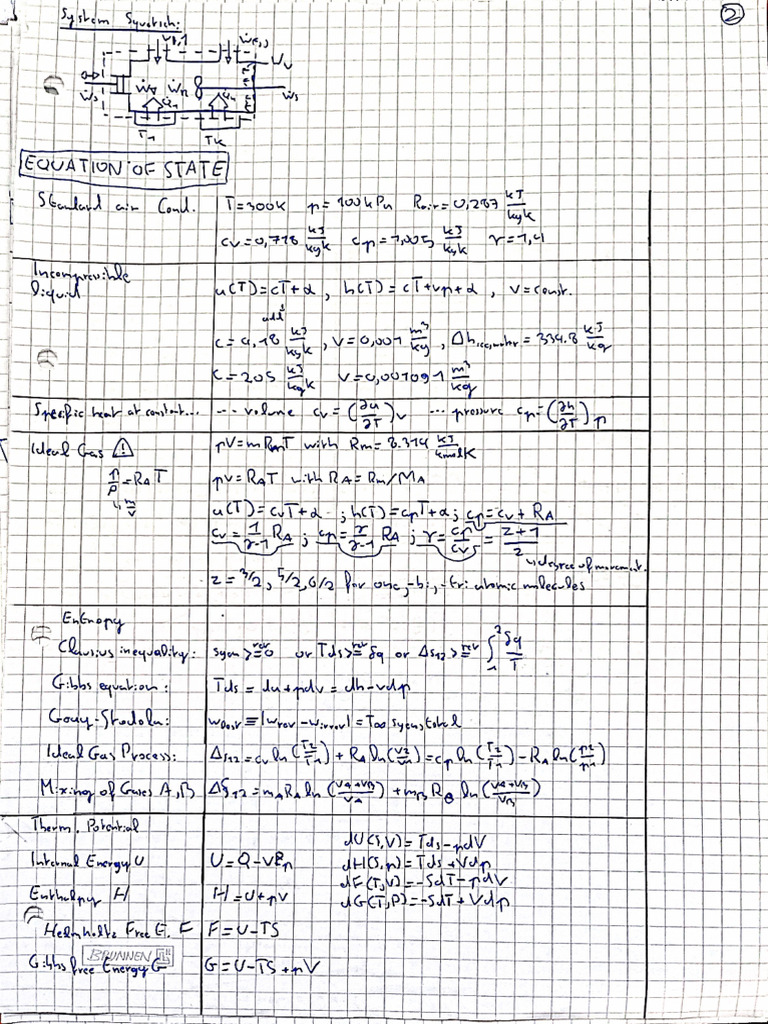 2
System Squetch:
Ẇv
Ẇs
Ẇs
T1
TK
EQUATION OF STATE
Standard air Cond. T=300K p=100kPa Rair=0,287 kJ/kgK
cv=0,718 kJ/kgK cp=1,005 kJ/kgK γ=1,4
Incompressible liquid u(T)=cT+α, h(T)=cT+vp+α, v=const.
c=4,18 kJ/kgK, v=0,001 m³/kg, Δhice,water=334.8 kJ/kg
c=205 kJ/kgK v=0,001091 m³/kg
Specific heat at constant... ... volume cv=(∂u/∂T)v ... pressure cp=(∂h/∂T)p
Ideal Gas ⚠ pV=mRmT with Rm=8.314 kJ/kmolK
p/ρ=RAT pv=RAT with RA=Rm/MA
↳ m/V
u(T)=cvT+α ; h(T)=cpT+α; cp=cv+RA
cv=1/(γ-1) RA; cp=γ/(γ-1) RA; γ=cp/cv=(z+1)/z
↳ degree of movement.
z=3/2, 5/2, 6/2 for one,-bi,-tri atomic molecules
Entropy
Clausius inequality: sgen ≥rev 0 or Tds ≥rev δq or Δs12 ≥rev ∫₁² δq/T
Gibbs equation: Tds=du+pdv=dh-vdp
Gouy-Stodola: wlost≡|wrev-wirrev|=T∞sgen,total
Ideal Gas Process: Δs12=cv ln(T2/T1)+RA ln(v2/v1)=cp ln(T2/T1)-RA ln(p2/p1)
Mixing of Gases A,B ΔS12=mARA ln((VA+VB)/VA)+mBRB ln((VA+VB)/VB)
Therm. Potential dU(S,V)=Tds-pdV
Internal Energy U dH(S,p)=Tds+Vdp
Enthalpy H H=U+pV dF(T,V)=-SdT-pdV
dG(T,P)=-SdT+Vdp
Helmholtz Free E. F F=U-TS
BRUNNEN
Gibbs free Energy G G=U-TS+pV